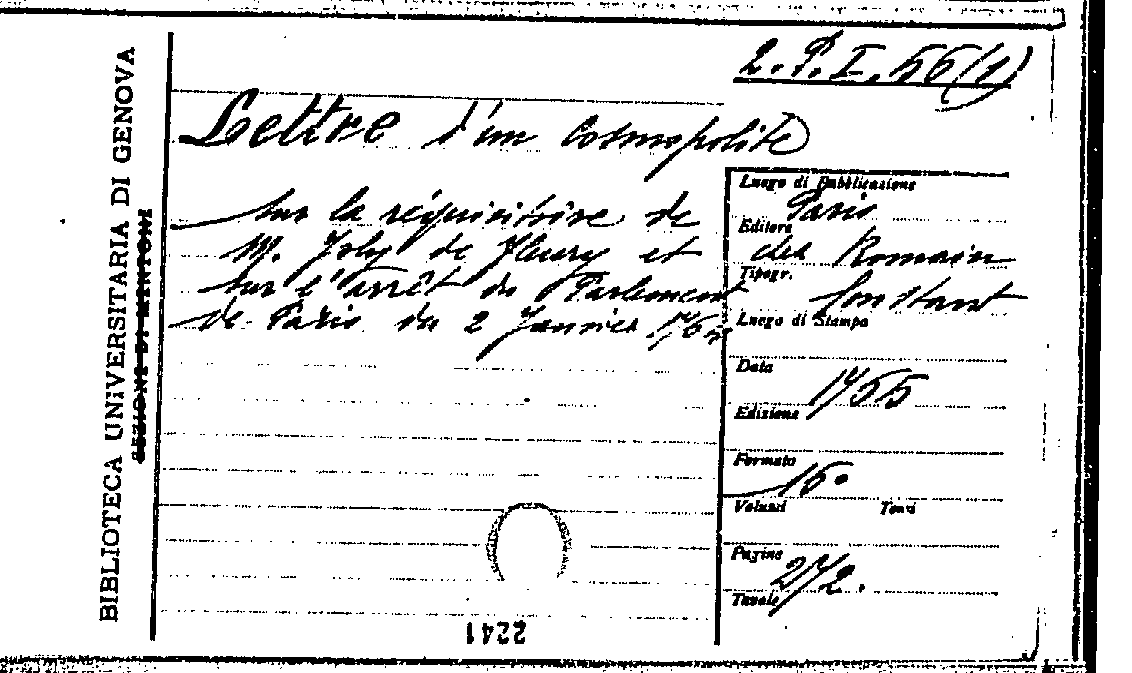 2. P. I. 56 (1)
Lettre d'un Cosmopolite
sur la réquisitoire de
M. Joly de Fleury et
sur l'arrêt du Parlement
de Paris du 2 Janvier
BIBLIOTECA UNIVERSITARIA DI GENOVA
Luogo di Pubblicazione
Paris
Editore
chez Romain
Tipogr.
Constant
Luogo di Stampa
Data
1765
Edizione
Formato
16°
Volumi Tomi
Pagine
272.
Tavole
2241